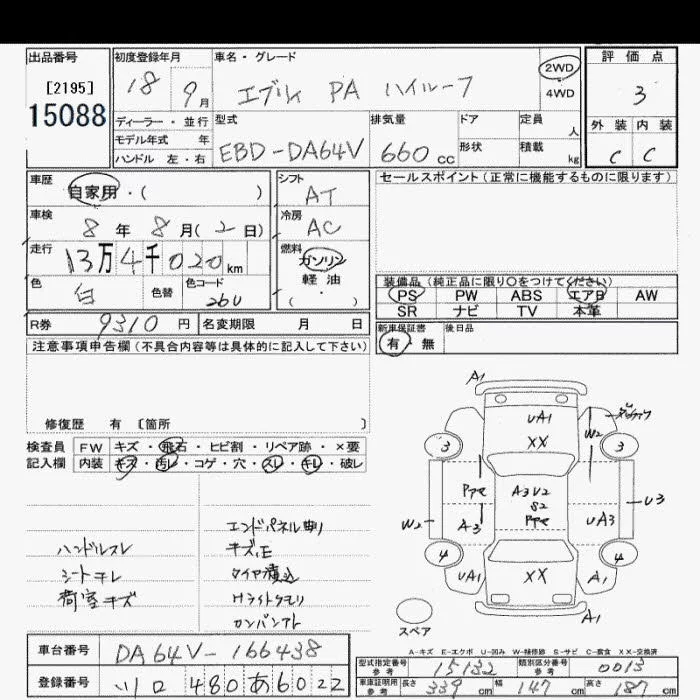 出品番号
[2195]
15088
初度登録年月
18 9月
車名・グレード
エブリィ PA ハイルーフ
2WD
4WD
評価点
3
外装 内装
C C
ディーラー・並行
モデル年式 年
ハンドル 左・右
型式
EBD-DA64V
排気量
660cc
ドア
形状
定員 人
積載 kg
車歴
自家用・( )
車検
8年 8月(2日)
走行
13万4千020km
色
白
色替
色コード
26U
シフト
AT
冷房
AC
燃料
ガソリン
軽油
( )
セールスポイント(正常に機能するものに限ります)
装備品(純正品に限り○をつけてください)
PS PW ABS エアB AW
SR ナビ TV 本革
新車保証書
有・無
後日品
R券 9310円
名変期限 月 日
注意事項申告欄(不具合内容等は具体的に記入して下さい)
修復歴 有 〔箇所 〕
検査員
記入欄
FW キズ・飛石・ヒビ割・リペア跡・×要
内装 キズ・汚レ・コゲ・穴・スレ・キレ・破レ
ハンドルスレ
シートキレ
荷室キズ
エンドパネル曲り
キズ、E
タイヤ積込
Hライトクモリ
A1
UA1
XX
W2
3
3
A3U2
S2
A3
UA3
U3
W2
4
4
UA1
XX
A1
A1
スペア
A-キズ E-エクボ U-凹み W-補修跡 S-サビ C-腐食 XX-交換済
車台番号
DA64V-166438
登録番号
480 あ 6022
型式指定番号
参考
15132
類別区分番号
参考
0013
車庫証明用
参考
長さ 339cm
幅 147cm
高さ 187cm